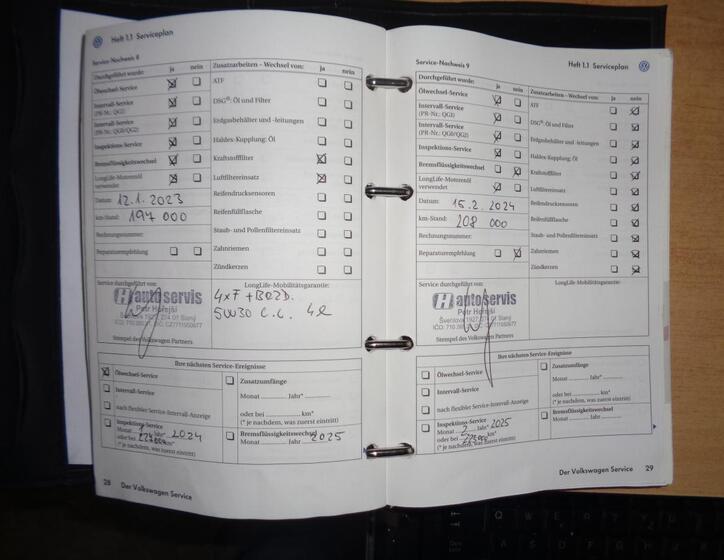 Heft 1.1 Serviceplan
Service-Nachweis 8
Durchgeführt wurde: ja nein
Ölwechsel-Service
Intervall-Service
(PR-Nr.: QG1)
Intervall-Service
(PR-Nr.: QG0/QG2)
Inspektions-Service
Bremsflüssigkeitswechsel
LongLife-Motorenöl
verwendet
Datum: 12.1.2023
km-Stand: 197 000
Rechnungsnummer:
Reparaturempfehlung
Zusatzarbeiten - Wechsel von: ja nein
ATF
DSG®: Öl und Filter
Erdgasbehälter und -leitungen
Haldex-Kupplung: Öl
Kraftstofffilter
Luftfiltereinsatz
Reifendrucksensoren
Reifenfüllflasche
Staub- und Pollenfiltereinsatz
Zahnriemen
Zündkerzen
Service durchgeführt von:
H autoservis
Petr Hořejší
Stempel des Volkswagen Partners
LongLife-Mobilitätsgarantie:
5W30
Ihre nächsten Service-Ereignisse
Ölwechsel-Service
Intervall-Service
nach flexibler Service-Intervall-Anzeige
Inspektions-Service
Monat Jahr 2024
oder bei km*
(* je nachdem, was zuerst eintritt)
Zusatzumfänge
Monat Jahr*
oder bei km*
(* je nachdem, was zuerst eintritt)
Bremsflüssigkeitswechsel
Monat Jahr 2025
28 Der Volkswagen Service
Service-Nachweis 9 Heft 1.1 Serviceplan
Durchgeführt wurde: ja nein
Ölwechsel-Service
Intervall-Service
(PR-Nr.: QG1)
Intervall-Service
(PR-Nr.: QG0/QG2)
Inspektions-Service
Bremsflüssigkeitswechsel
LongLife-Motorenöl
verwendet
Datum: 15.2.2024
km-Stand: 208 000
Rechnungsnummer:
Reparaturempfehlung
Zusatzarbeiten - Wechsel von: ja nein
ATF
DSG®: Öl und Filter
Erdgasbehälter und -leitungen
Haldex-Kupplung: Öl
Kraftstofffilter
Luftfiltereinsatz
Reifendrucksensoren
Reifenfüllflasche
Staub- und Pollenfiltereinsatz
Zahnriemen
Zündkerzen
Service durchgeführt von:
H autoservis
Petr Hořejší
Stempel des Volkswagen Partners
LongLife-Mobilitätsgarantie:
Ihre nächsten Service-Ereignisse
Ölwechsel-Service
Intervall-Service
nach flexibler Service-Intervall-Anzeige
Inspektions-Service
Monat 2 Jahr 2025
oder bei km*
(* je nachdem, was zuerst eintritt)
Zusatzumfänge
Monat Jahr*
oder bei km*
(* je nachdem, was zuerst eintritt)
Bremsflüssigkeitswechsel
Monat Jahr
Der Volkswagen Service 29